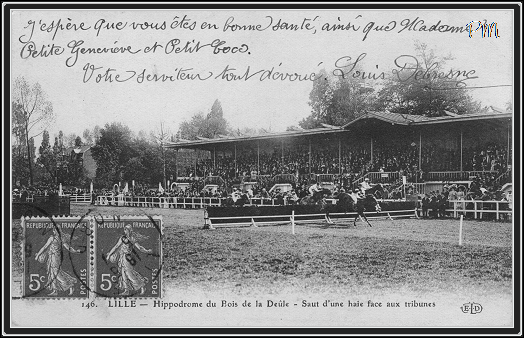 j'espère que vous êtes en bonne santé, ainsi que Madame
Petite Geneviève et Petit Coco
Votre serviteur tout dévoué, Louis Defresne
5c 5c
RÉPUBLIQUE FRANÇAISE
POSTES POSTES
146. LILLE - Hippodrome du Bois de la Deûle - Saut d'une haie face aux tribunes
E L D